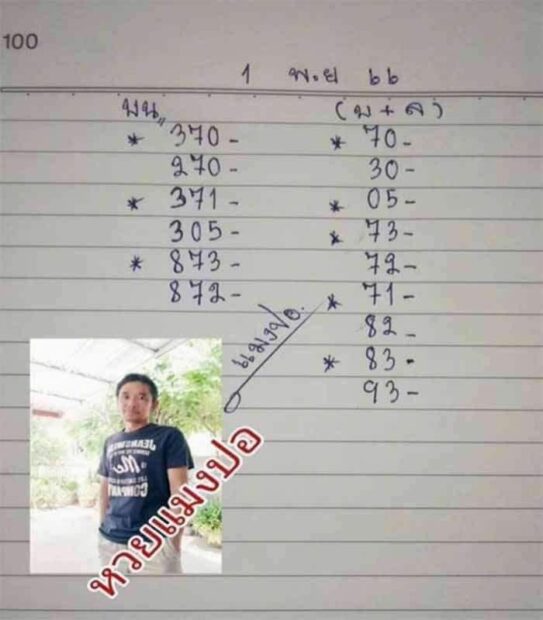 100
1 พ.ย ๖๖
บน,, (บ + ล)
* 370- * 70-
270- 30-
* 371- * 05-
305- * 73-
* 873- 72-
872- * 71-
แมงปอ. 82-
* 83-
93-
JEANSWEAR
Me
COMPANY
หวยแมงปอ